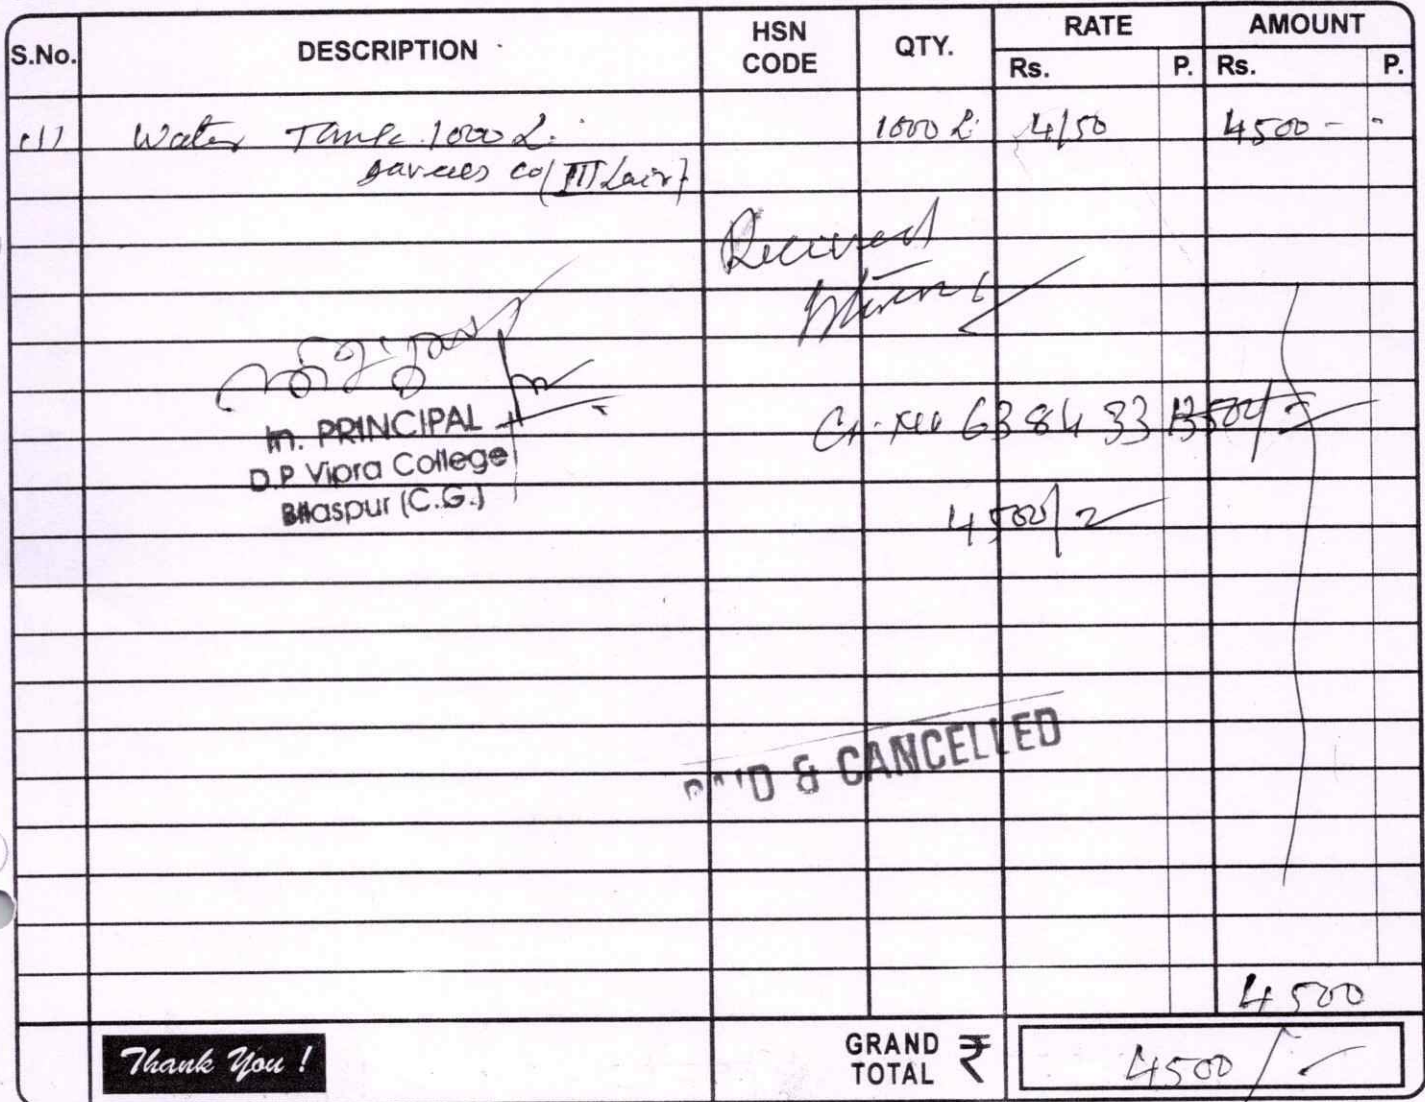 S.No. DESCRIPTION HSN CODE QTY. RATE AMOUNT
Rs. P. Rs. P.
(1) Water Tank 1000 L. 1000 L. 4/50 4500 - -
Received
In. PRINCIPAL
D.P Vipra College
Bilaspur (C.G.)
638433 13504/-
4500/-
PAID & CANCELLED
4500
Thank You ! GRAND TOTAL ₹ 4500/-